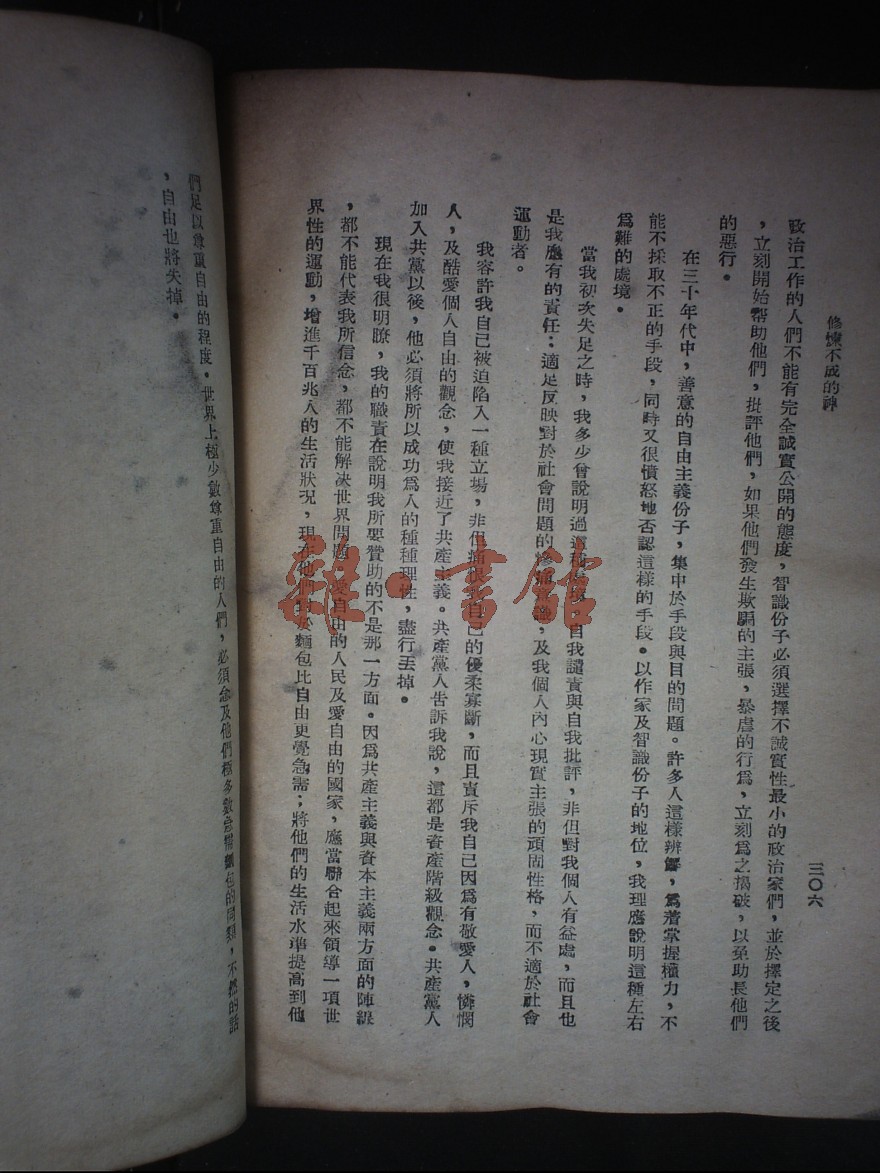 修煉不成的神
三〇六
政治工作的人們不能有完全誠實公開的態度，智識份子必須選擇不誠實性最小的政治家們，並於擇定之後
，立刻開始幫助他們，批評他們，如果他們發生欺騙的主張，暴虐的行爲，立刻爲之揭破，以免助長他們
的惡行。
在三十年代中，善意的自由主義份子，集中於手段與目的問題。許多人這樣辨解，爲着掌握權力，不
能不採取不正的手段，同時又很憤怒地否認這樣的手段。以作家及智識份子的地位，我理應說明這種左右
爲難的處境。
當我初次失足之時，我多少曾說明過這種處境，自我譴責與自我批評，非但對我個人有益處，而且也
是我應有的責任；適足反映對於社會問題的，及我個人內心現實主張的頑固性格，而不適於社會
運動者。
我容許我自己被迫陷入一種立場，非但痛恨我自己的優柔寡斷，而且責斥我自己因爲有敬愛人，憐憫
人，及酷愛個人自由的觀念，使我接近了共產主義。共產黨人告訴我說，這都是資產階級觀念。共產黨人
加入共黨以後，他必須將所以成功爲人的種種理性，盡行丟掉。
現在我很明瞭，我的職責在說明我所要贊助的不是那一方面。因爲共產主義與資本主義兩方面的陣線
，都不能代表我所信念，都不能解決世界問題。愛自由的人民及愛自由的國家，應當聯合起來領導一項世
界性的運動，增進千百兆人的生活狀況，現在他們對於麵包比自由更覺急需；將他們的生活水準提高到他
們足以尊重自由的程度。世界上極少數尊重自由的人們，必須念及他們極多數急需麵包的同類，不然的話
，自由也將失掉。
雜·書館